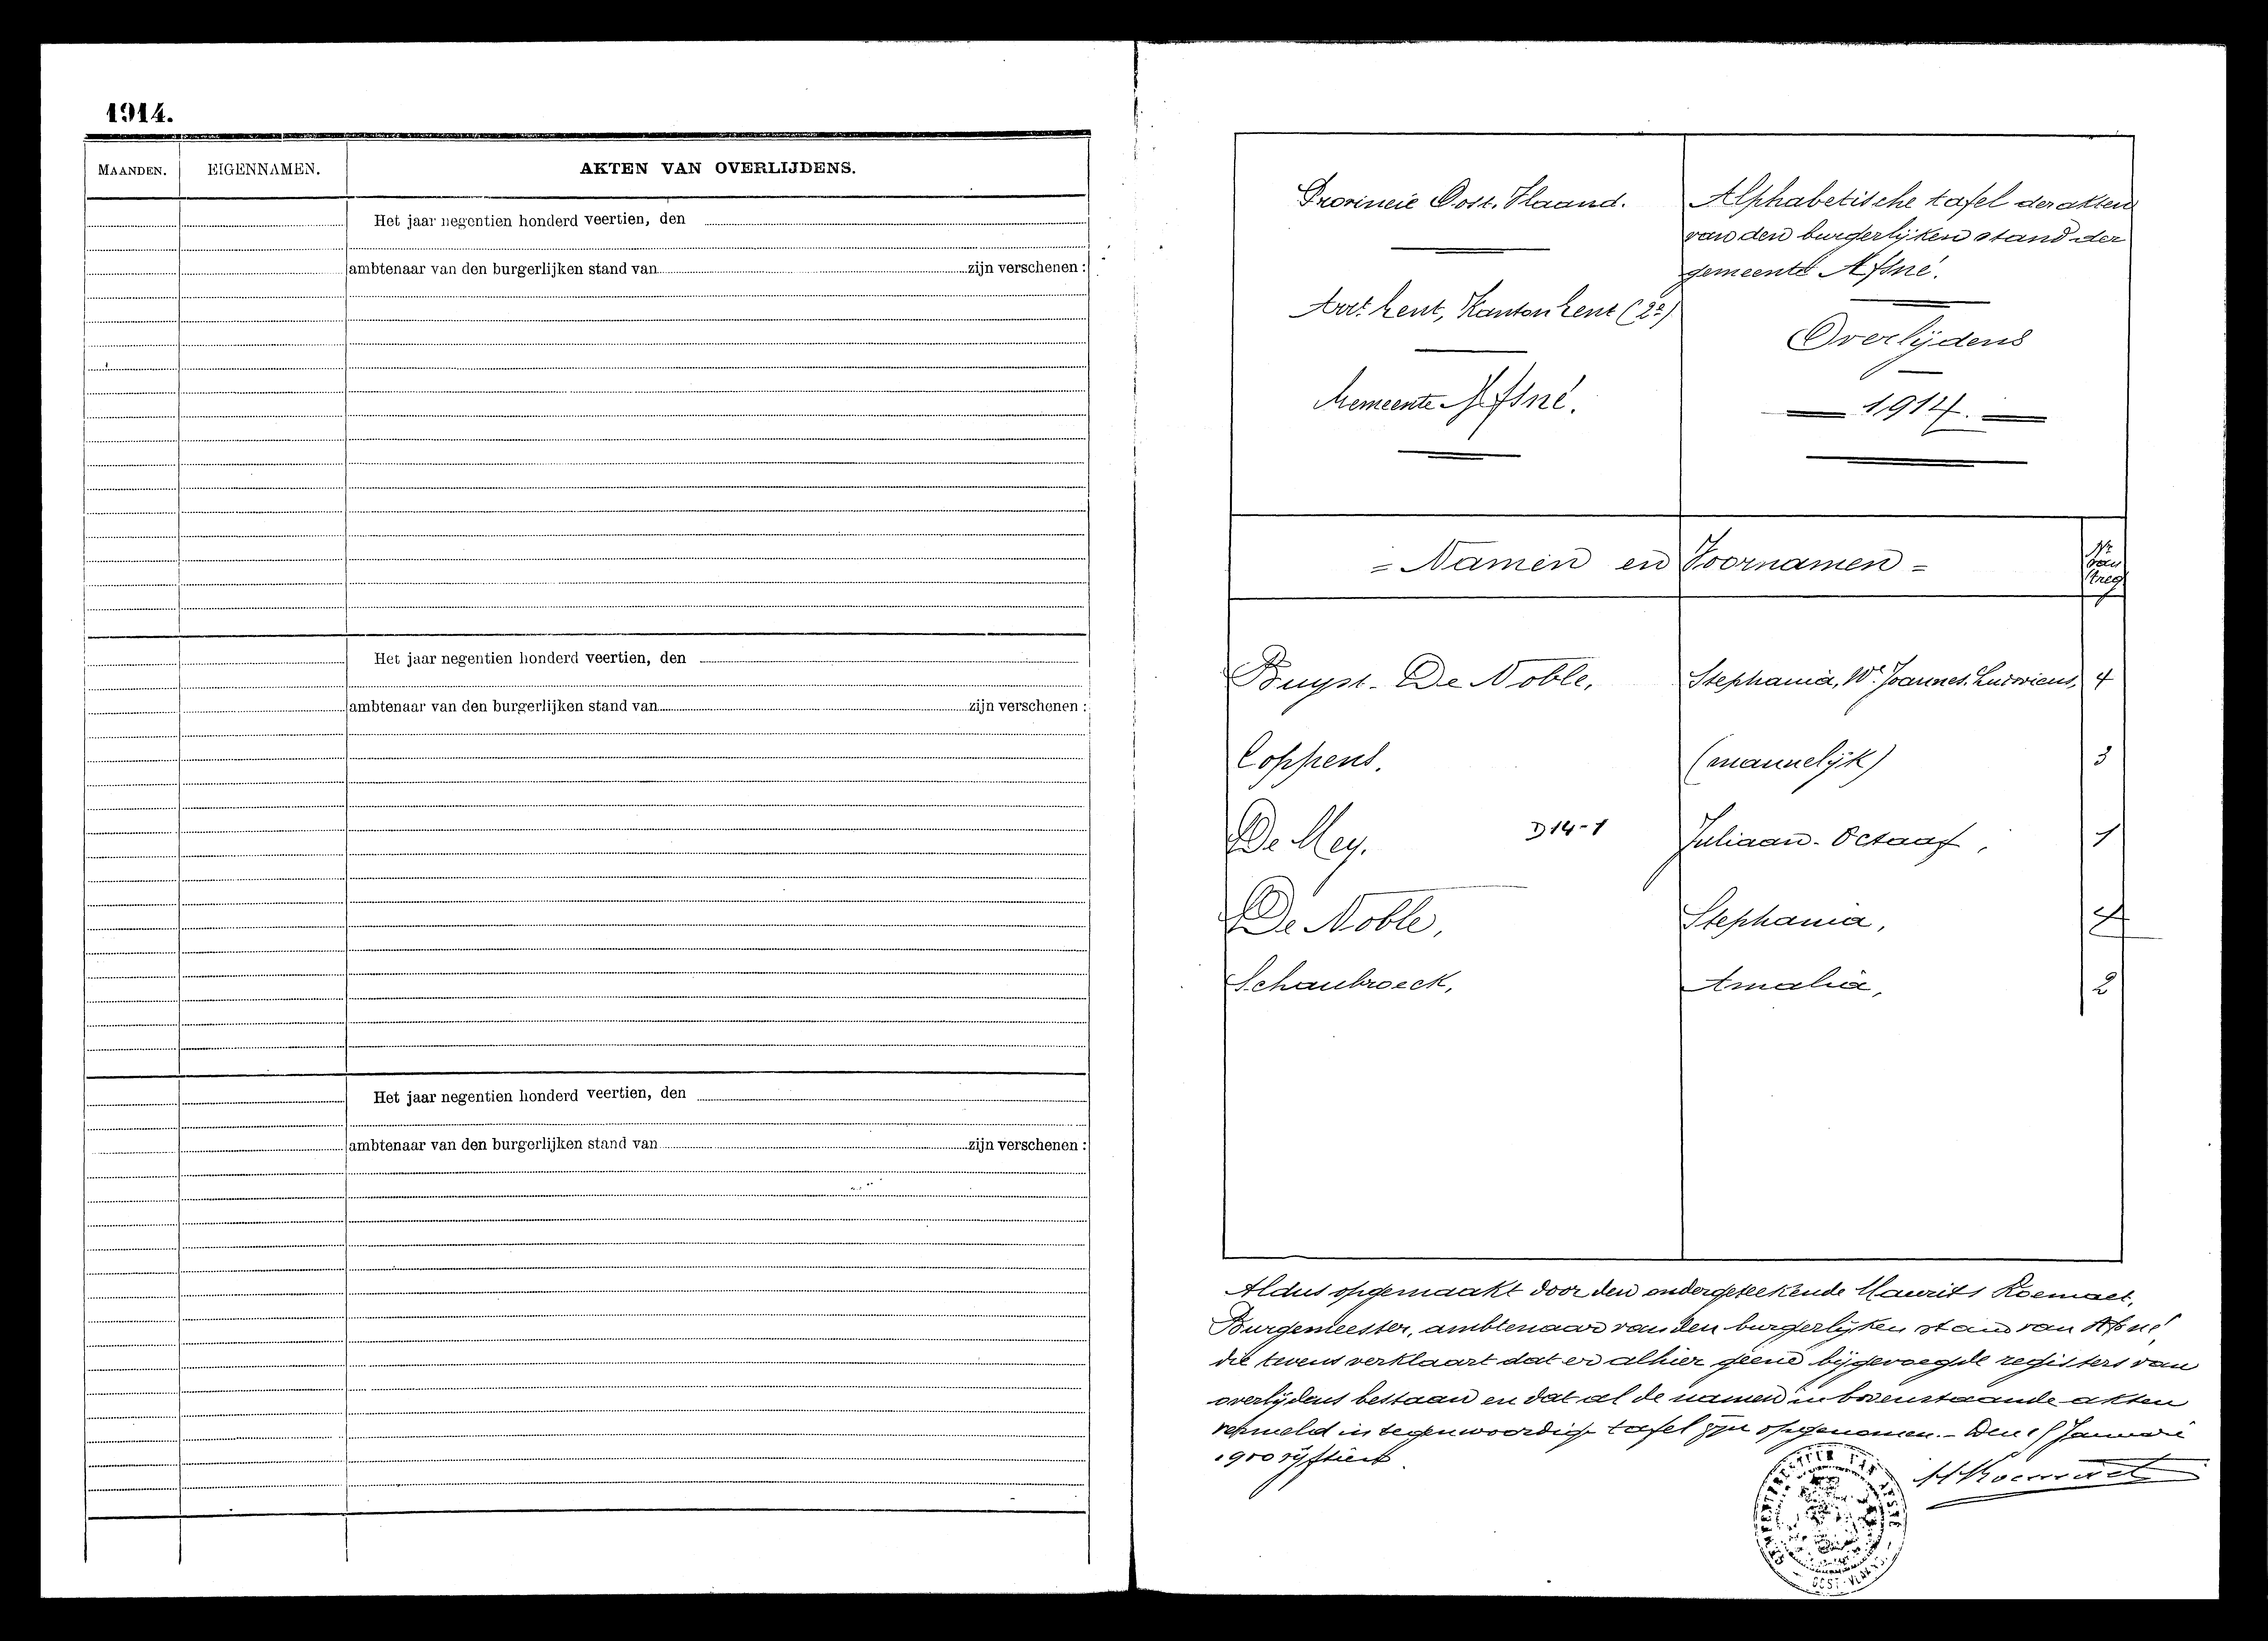 1914.
MAANDEN. EIGENNAMEN. AKTEN VAN OVERLIJDENS.
Het jaar negentien honderd veertien, den
ambtenaar van den burgerlijken stand van zijn verschenen :
Het jaar negentien honderd veertien, den
ambtenaar van den burgerlijken stand van zijn verschenen :
Het jaar negentien honderd veertien, den
ambtenaar van den burgerlijken stand van zijn verschenen :
Provincie Oost. Vlaand.
Arrt Gent, Kanton Gent (2e)
Gemeente Afsné.
Alphabetische tafel der akten
van den burgerlijken stand der
gemeente Afsné.
Overlijdens
1914.
= Namen en Voornamen = Nr van 't reg
Buyst. De Noble, Stephania, We Joannes. Ludovicus, 4
Coppens. (mannelijk) 3
De Mey. D14-1 Juliaan. Octaaf, 1
De Noble, Stephania, 4
Schaubroeck, Amalia, 2
Aldus opgemaakt door den ondergeteekende Maurits Roemaet,
Burgemeester, ambtenaar van den burgerlijken stand van Afsné
die tevens verklaart dat er alhier geene bijgevoegde registers van
overlijdens bestaan en dat al de namen in bovenstaande akten
vermeld in tegenwoordige tafel zijn opgenomen.- Den Januari
1900 vijftien
M Roemaet
GEMEENTEBESTUUR VAN AFSNÉ
OOST-VLAAND.